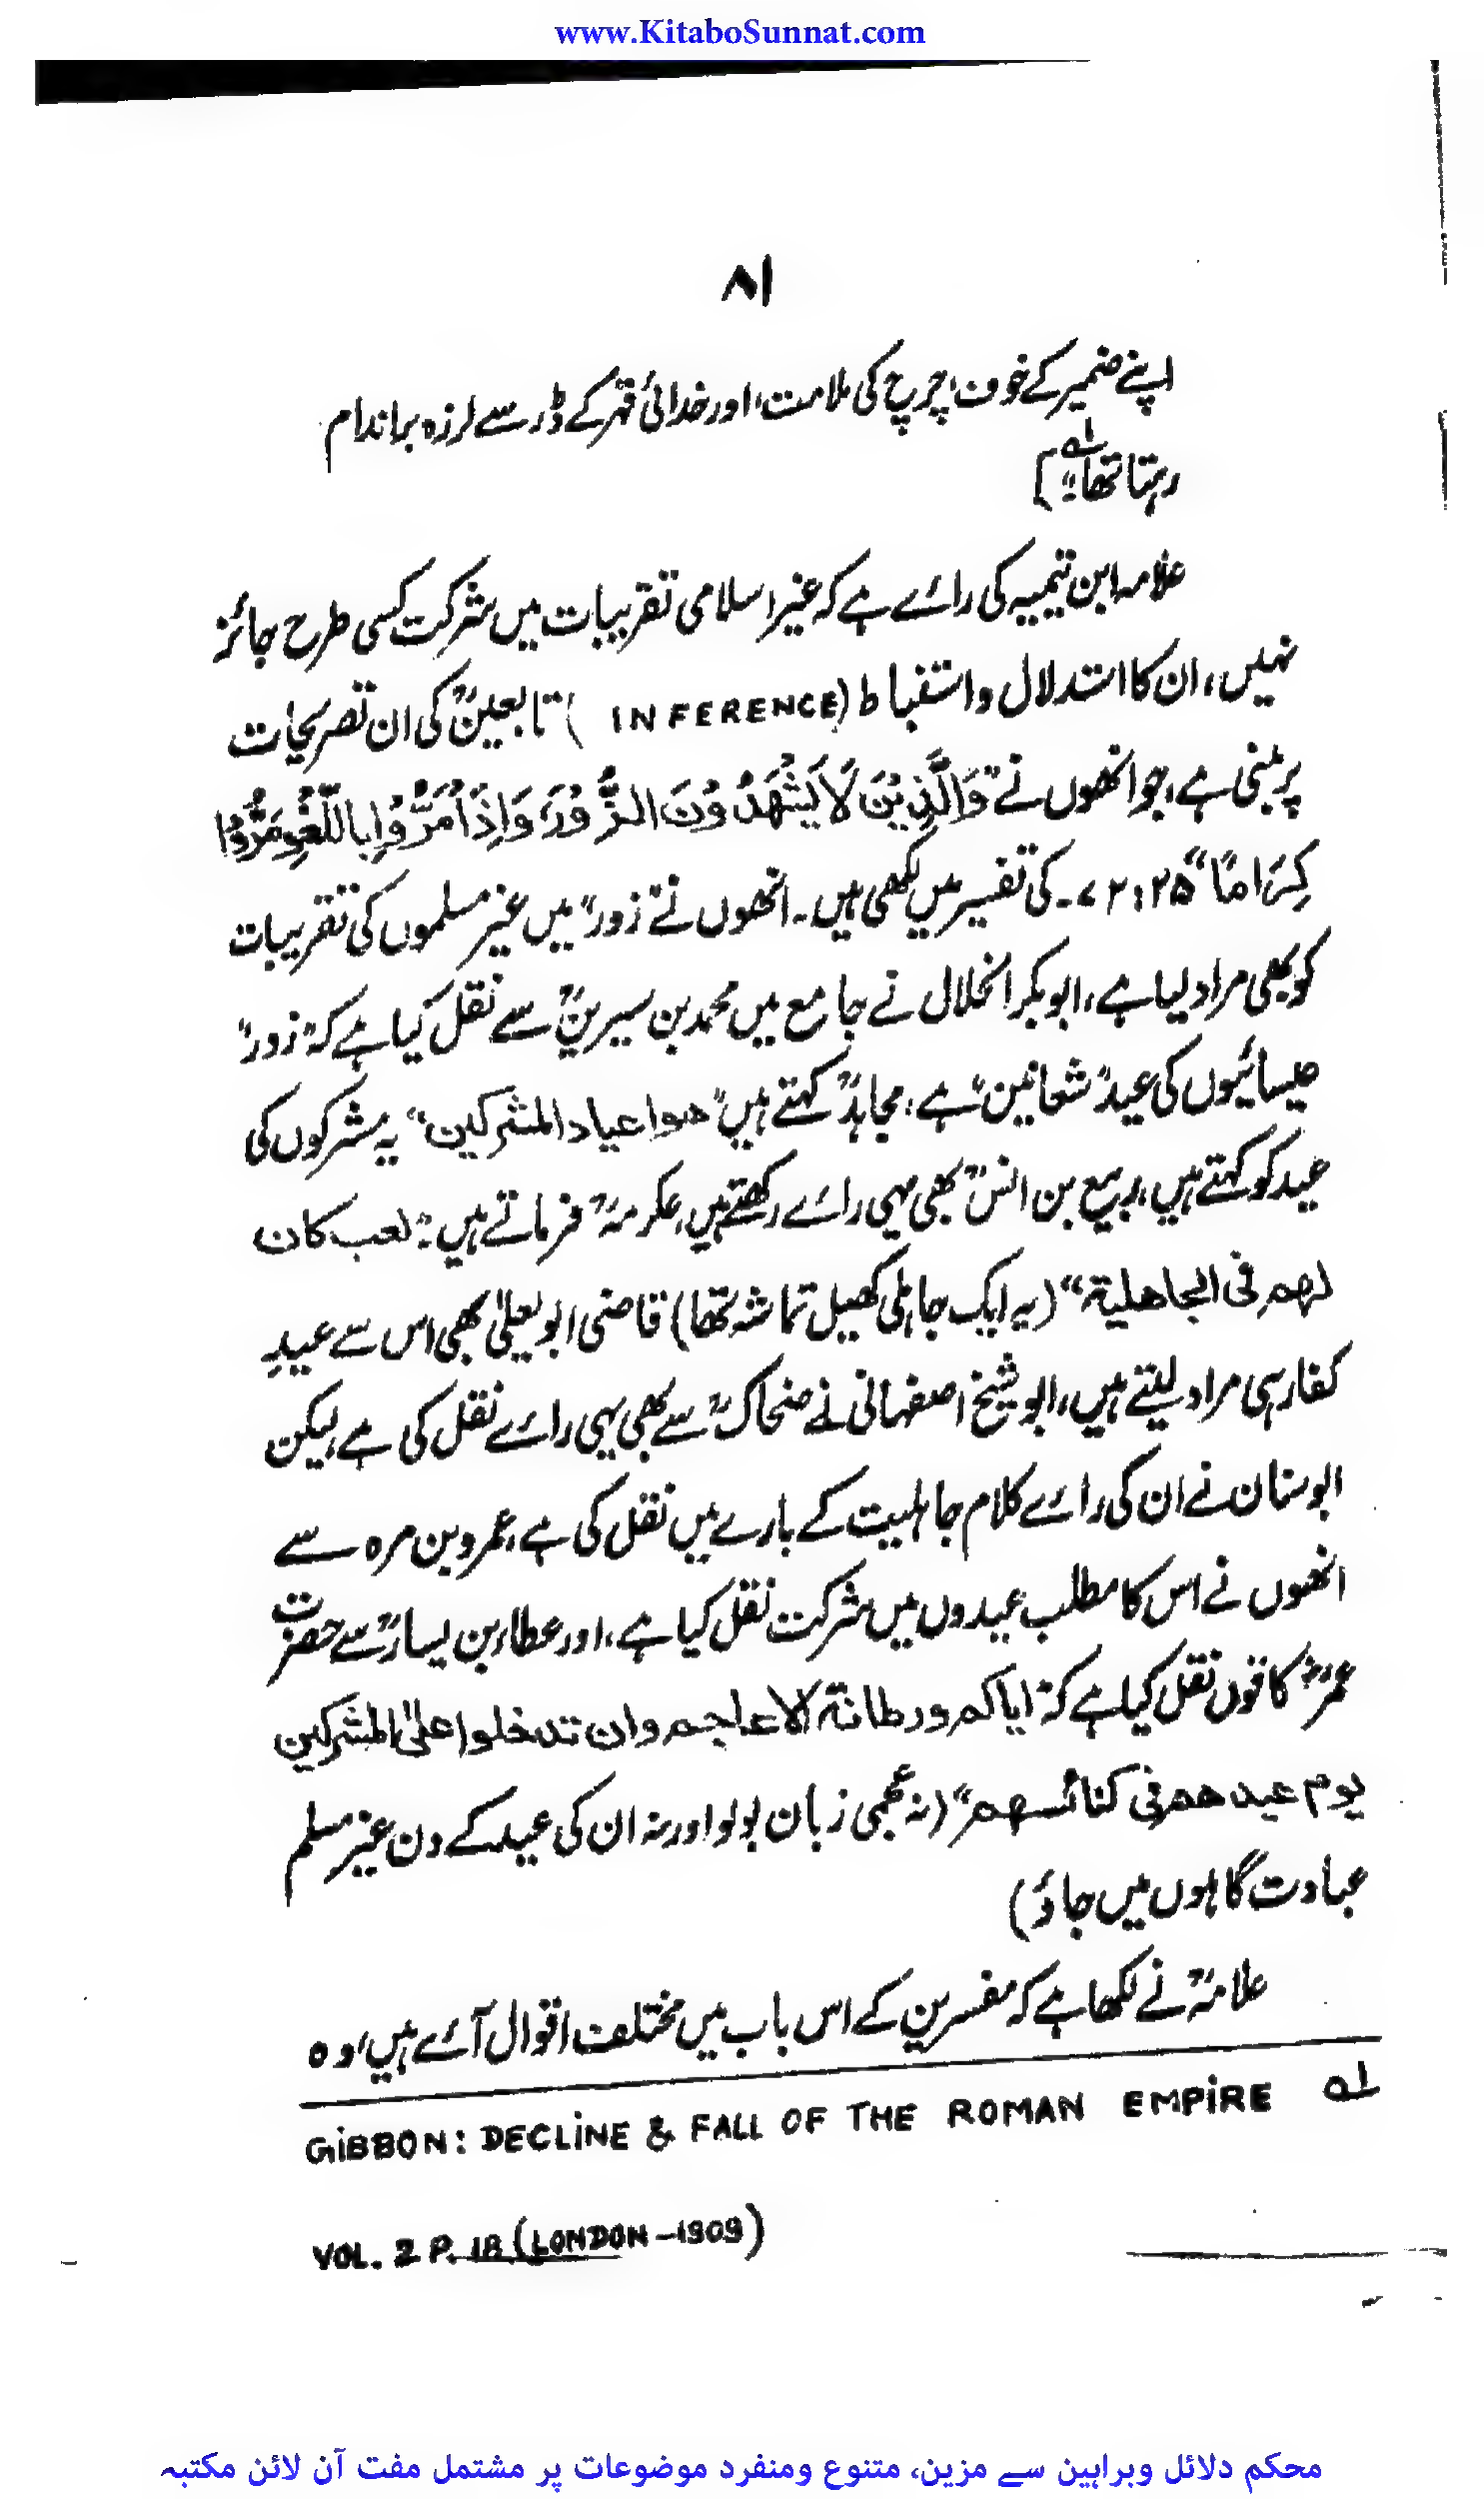 www.KitaboSunnat.com
۸۱
اپنے ضمیر کے خوف، چرچ کی ملامت، اور خدائی قہر کے ڈر سے لرزہ براندام
رہتا تھا"؂۱]
علامہ ابن تیمیہ کی رائے ہے کہ غیر اسلامی تقریبات میں شرکت کسی طرح جائز
نہیں، ان کا استدلال واستنباط (INFERENCE) تابعینؒ کی ان تصریحات
پر مبنی ہے، جو انھوں نے "وَالَّذِيْنَ لَا يَشْهَدُوْنَ الزُّوْرَ وَاِذَا مَرُّوْا بِاللَّغْوِ مَرُّوْا
كِرَامًا" ۷۲:۲۵۔ کی تفسیر میں لکھی ہیں۔ انھوں نے "زور" میں غیر مسلموں کی تقریبات
کو بھی مراد لیا ہے، ابوبکر الخلال نے جامع میں محمد بن سیرینؒ سے نقل کیا ہے کہ "زور"
عیسائیوں کی عید "شعانین" ہے، مجاہدؒ کہتے ہیں "هو اعياد المشركين" یہ مشرکوں کی
عید کو کہتے ہیں، ربیع بن انسؒ بھی یہی رائے رکھتے ہیں، عکرمہؒ فرماتے ہیں: "لعب كان
لهم في الجاهلية" (یہ ایک جاہلی کھیل تماشہ تھا) قاضی ابو یعلیٰ بھی اس سے عیدِ
کفار ہی مراد لیتے ہیں، ابو شیخ اصفہانی نے ضحاکؒ سے بھی یہی رائے نقل کی ہے، لیکن
ابو سنان نے ان کی رائے کلام جاہلیت کے بارے میں نقل کی ہے، عمرو بن مرہ سے
انھوں نے اس کا مطلب عیدوں میں شرکت نقل کیا ہے، اور عطاء بن یسارؒ سے حضرت
عمرؓ کا قول نقل کیا ہے کہ "اياكم ورطانة الاعاجم وان تدخلوا على المشركين
يوم عيدهم في كنائسهم" (نہ عجمی زبان بولو اور نہ ان کی عید کے دن غیر مسلم
عبادت گاہوں میں جاؤ)
علامہؒ نے لکھا ہے کہ مفسرین کے اس باب میں مختلف اقوال آئے ہیں، وہ
؂۱ GIBBON: DECLINE & FALL OF THE ROMAN EMPIRE
VOL. 2 P. 18 (LONDON-1909)
محکم دلائل وبراہین سے مزین، متنوع ومنفرد موضوعات پر مشتمل مفت آن لائن مکتبہ